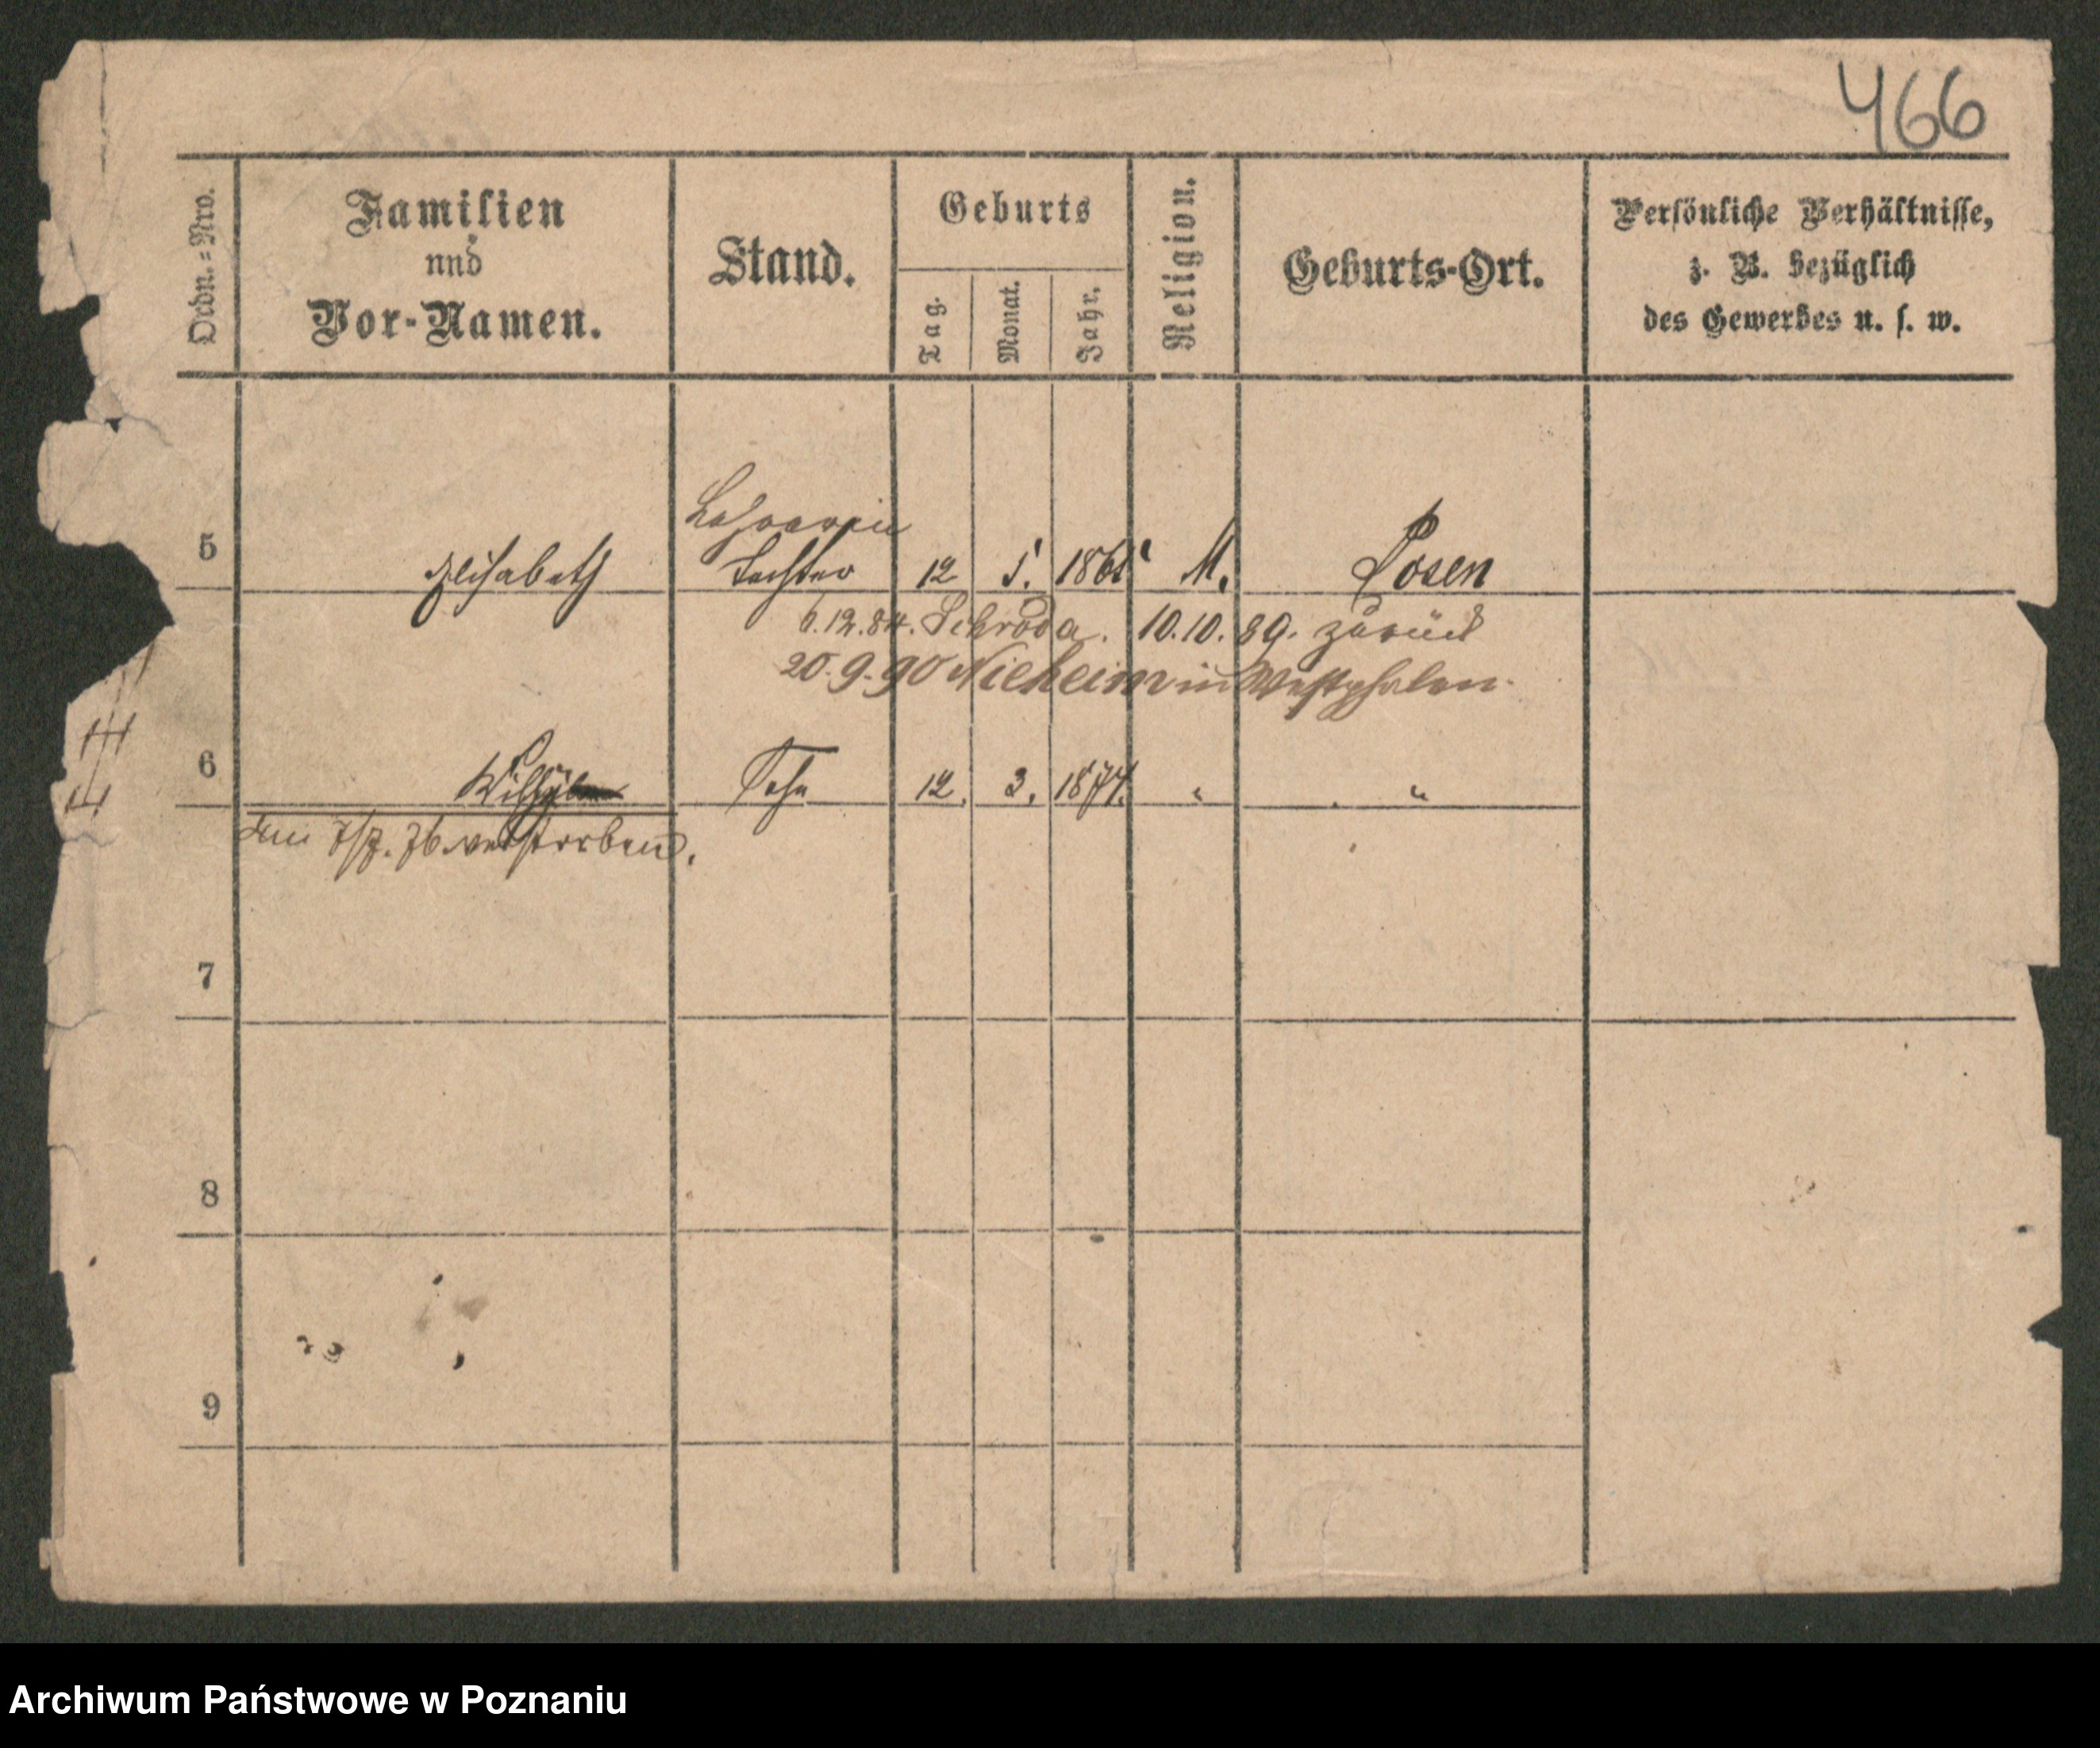 466
Ordn.=Nro.
Familien
und
Vor-Namen.
Stand.
Geburts
Tag.
Monat.
Jahr.
Religion.
Geburts-Ort.
Persönliche Verhältnisse,
z. B. bezüglich
des Gewerbes u. s. w.
Lehrerin
5 Elisabeth Tochter 12 5. 1865 Posen
6.12.84. Schroda. 10.10.89. zurück
20.9.90 Nieheim in Westphalen.
6 Wilhelm Sohn 12. 3. 1874. " "
verstorben.
7
8
9
Archiwum Państwowe w Poznaniu